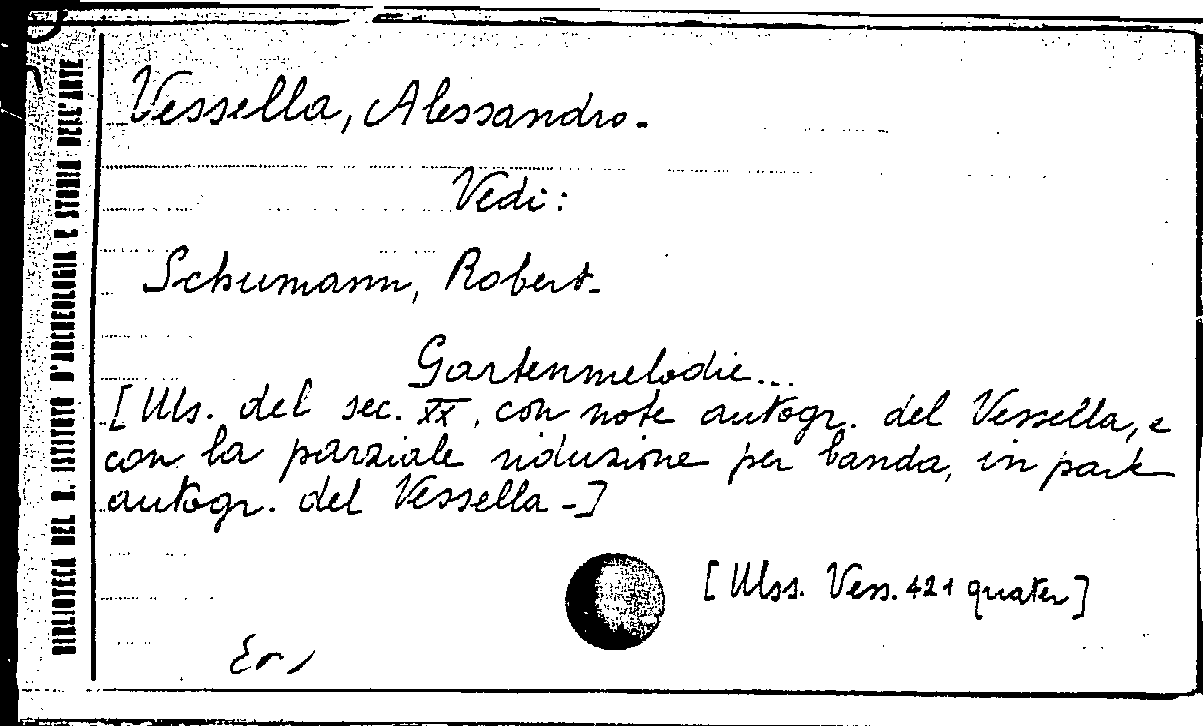 BIBLIOTECA DEL R. ISTITUTO D'ARCHEOLOGIA E STORIA DELL'ARTE
Vessella, Alessandro.
Vedi:
Schumann, Robert.
Gartenmelodie...
[Ms. del sec. XX, con note autogr. del Vessella, e
con la parziale riduzione per banda, in parte
autogr. del Vessella.-]
[Mss. Vess. 421 quater]